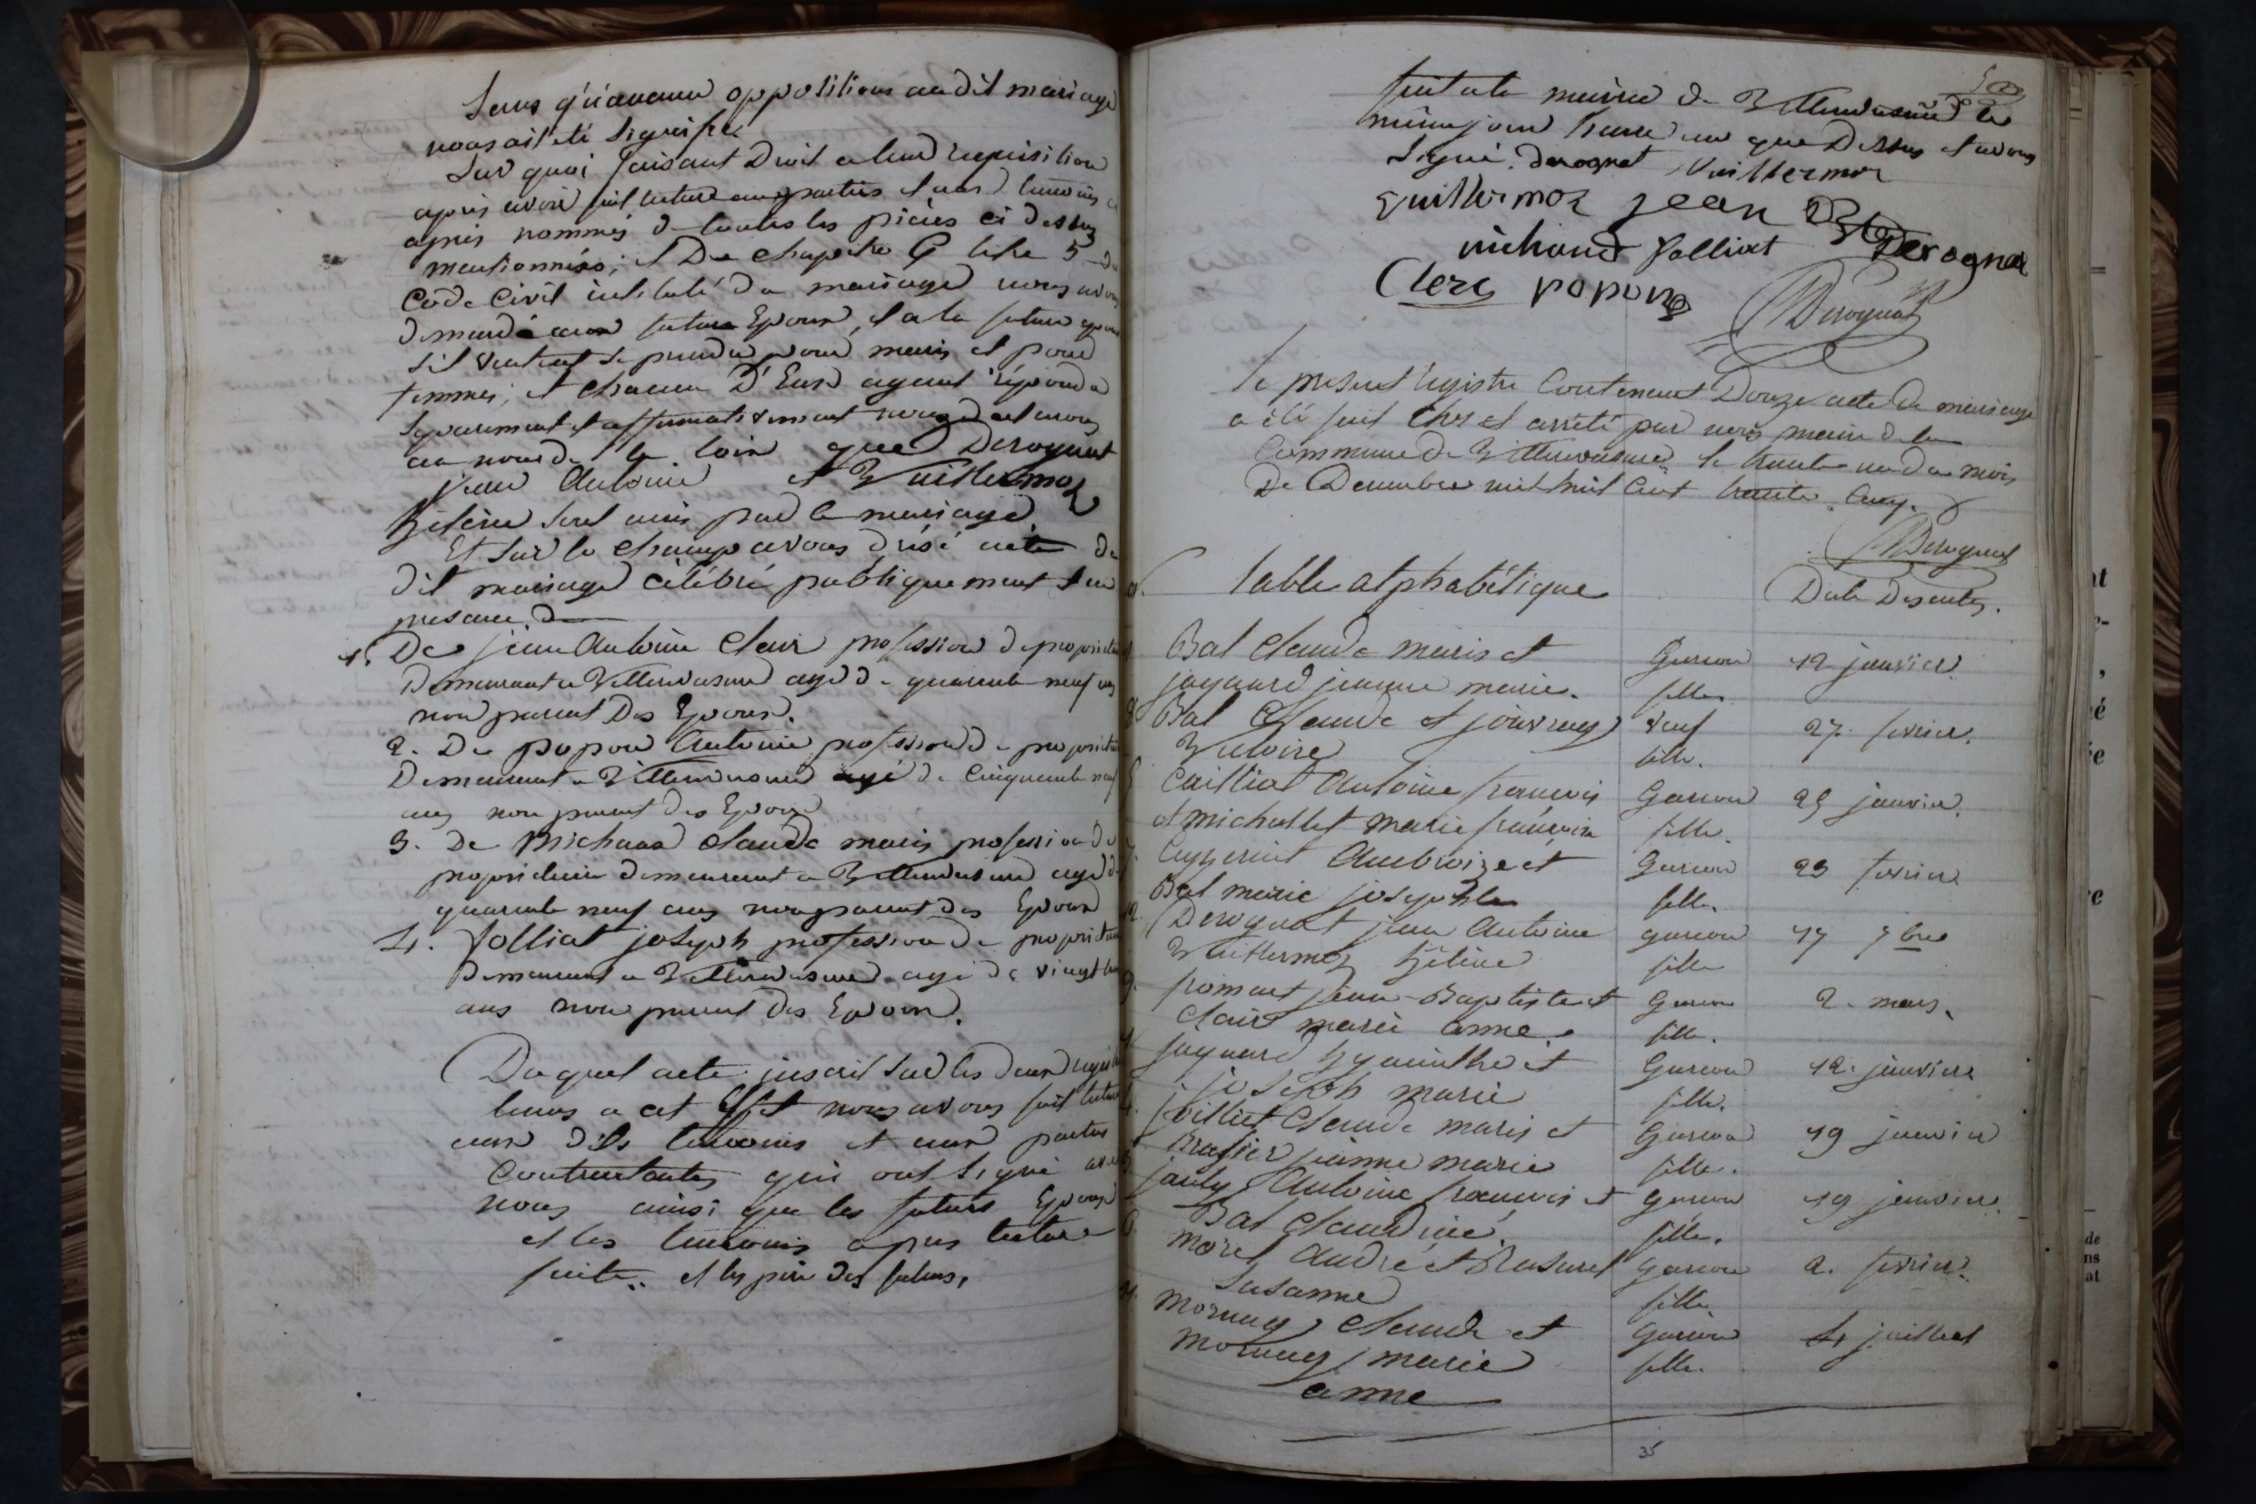 Sans qu'aucune oppositions audit mariage
nous ait été signifié
Sur quoi faisant Droit a leur requisition
apris avoir fait lecture aux parties et aux temoins ci
apris nommés de toutes les pièces ci dessus
mentionnées; et Du chapitre 6 titre 5 du
Code Civil intitulé du mariage nous avons
demandé aux future Epoux, et a la future epouse
s'il veulent se prendre pour maris et pour
femmes; et chacun D'Eux ayant répondu
separement et affirmativement nous
au nom de la loix que Derognat
jean Antoine et Vuillermoz
hélène sont unis par le mariage.
Et Sur le champ avons drésé acte du
dit mariage célébré publiquement et en
presance de
1. De jean Antoine Clair profession de propriétaire
Demeurant a Villeversure agé de quarante neuf ans
non parent Des Epoux.
2. De popon Antoine profession de propriétaire
Demeurant a Villeversure agé de Cinquante neuf
ans non parent des Epoux
3. De Michaud Claude maris profession de
propriétaire demeurant a Villeversure agé de
quarante neuf ans non parent des Epoux
4. folliat joseph profession de propriétaire
Demeurant a Villeversure agé de vingt
ans non parent des Epoux.
Du quel acte inscrit sur les deux registres
tenus a cet effet nous avons fait lecture
aux dits temoins et aux parties
Contractantes qui ont signé avec
nous ainsi que les futurs Epoux
et les temoins apres lecture
faite. et les père des futurs.
fait a la mairie de Villeversure les
même jour heure an que Dessus et avons
Signé. derognat Vuillermoz
Guillermoz jean Derognat
michaud folliat
Clerc popon
Derognat
le present registre Contenant Douze acte de mariage
a été fait Clos et arrêté par nous maire de la
Commune de Villeversure le trente un du mois
De Decembre mil huit Cent trente Cinq.
Derognat
Table alphabétique Date Des actes.
Bal Claude maris et Garcon 12 janvier
jaquard jeanne marie. fille
Bal Claude et Veuf 27. fevrier.
Victoire fille.
Cailliat Antoine francois Garcon 25 janvier.
et michallet marie francoise fille.
Ambroize et Garcon 23 fevrier
Bal marie josephte fille.
12. Derognat jean Antoine garcon 17 7bre
Vuillermoz hélène fille
9. jean-Baptiste et Garcon 2. mars.
Clair marie anne. fille.
jaquard hyacinthe et Garcon 12. janvier
joseph marie fille.
4. folliet Claude maris et Garcon 19 janvier
jeanne marie fille.
Antoine francois et garcon 19 janvier.
Bal Claudine. fille.
6. Morel André et Rasurel garcon 2. fevrier.
Susanne fille.
11. Mornay Claude et Garcon 4 juillet
Mornay marie fille.
anne
35